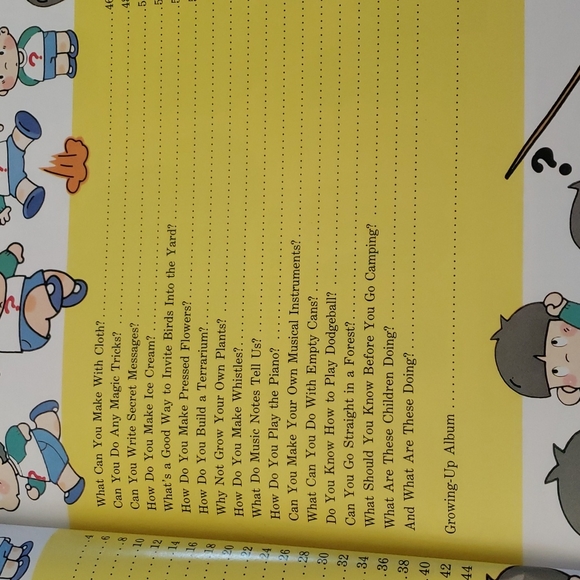 4
6
8
10
12
14
16
18
20
22
24
26
28
30
32
34
36
38
40
42
44
What Can You Make With Cloth? 46
Can You Do Any Magic Tricks?
Can You Write Secret Messages?
How Do You Make Ice Cream?
What's a Good Way to Invite Birds Into the Yard?
How Do You Make Pressed Flowers?
How Do You Build a Terrarium?
Why Not Grow Your Own Plants?
How Do You Make Whistles?
What Do Music Notes Tell Us?
How Do You Play the Piano?
Can You Make Your Own Musical Instruments?
What Can You Do With Empty Cans?
Do You Know How to Play Dodgeball?
Can You Go Straight in a Forest?
What Should You Know Before You Go Camping?
What Are These Children Doing?
And What Are These Doing?
Growing-Up Album
?